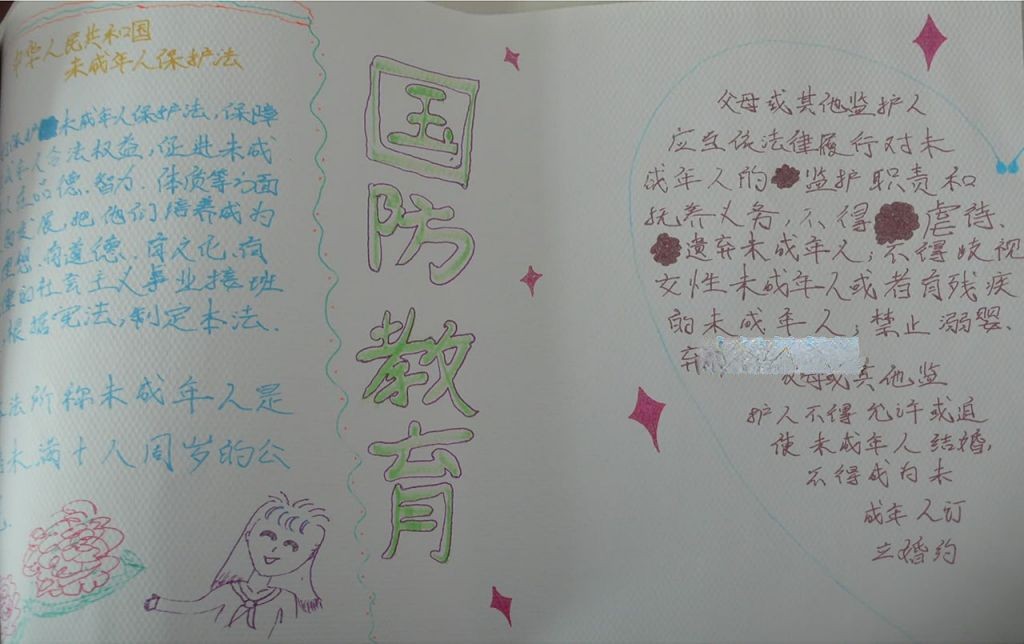 中华人民共和国
未成年人保护法
保护未成年人保护法,保障
年人合法权益,促进未成
人在品德、智力、体质等方面
发展,把他们培养成为
理想、有道德、有文化、有
律的社会主义事业接班
根据宪法,制定本法.
法所称未成年人是
未满十八周岁的公
国防教育
父母或其他监护人
应当依法律履行对未
成年人的监护职责和
抚养义务,不得虐待、
遗弃未成年人;不得歧视
女性未成年人或者有残疾
的未成年人;禁止溺婴、
弃
父母或其他监
护人不得允许或迫
使未成年人结婚,
不得成为未
成年人订
立婚约